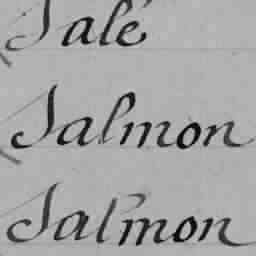 Salé
Salmon
Salmon